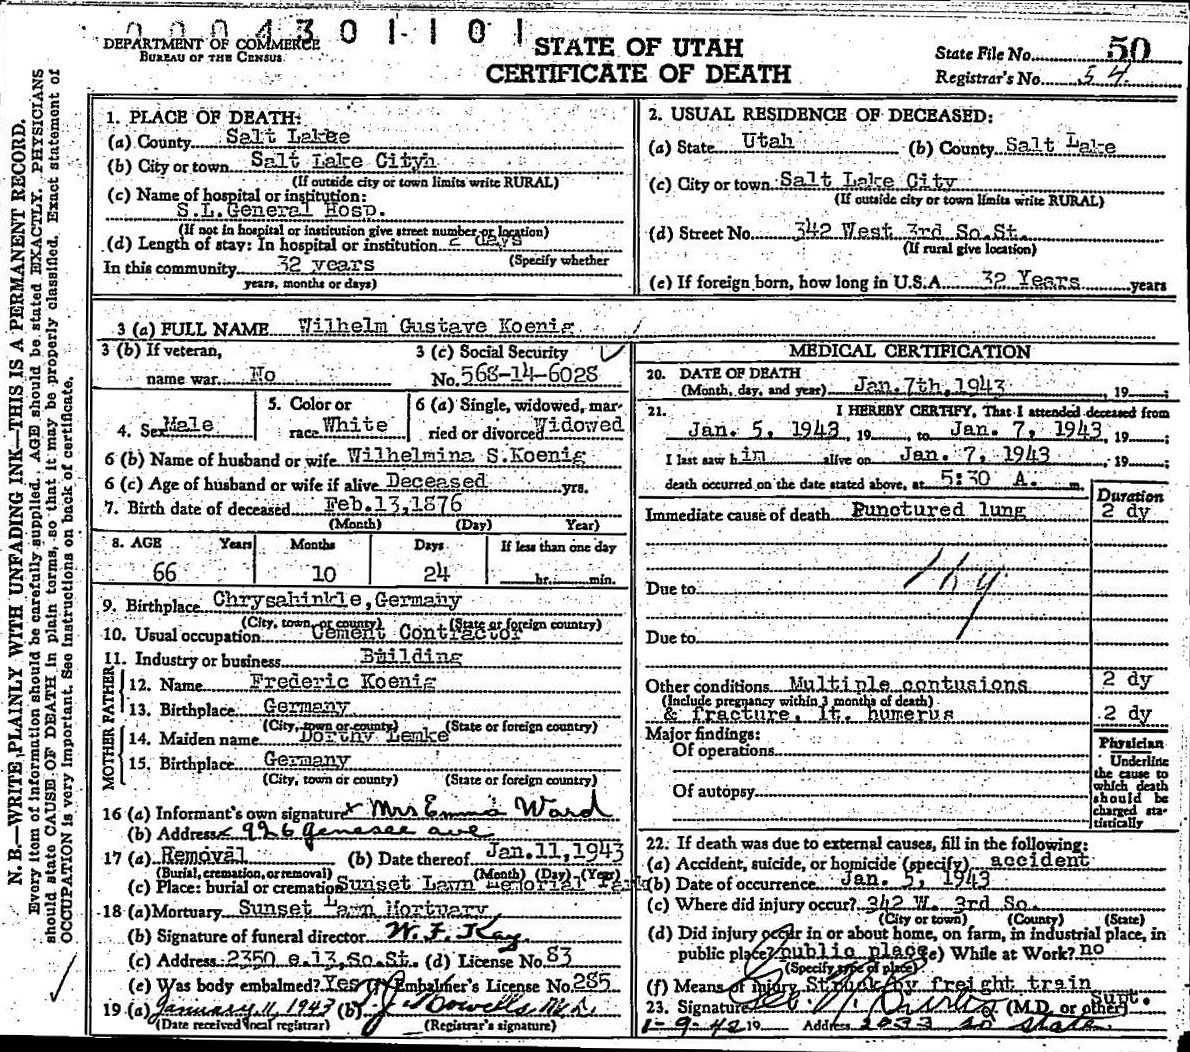 0004301101
DEPARTMENT OF COMMERCE
BUREAU OF THE CENSUS
STATE OF UTAH
CERTIFICATE OF DEATH
State File No. 50
Registrar's No. 54
N. B.—WRITE PLAINLY WITH UNFADING INK—THIS IS A PERMANENT RECORD.
Every item of information should be carefully supplied. AGE should be stated EXACTLY. PHYSICIANS
should state CAUSE OF DEATH in plain terms, so that it may be properly classified. Exact statement of
OCCUPATION is very important. See instructions on back of certificate.
1. PLACE OF DEATH:
(a) County Salt Lake
(b) City or town Salt Lake City
(If outside city or town limits write RURAL)
(c) Name of hospital or institution:
S.L.General Hosp.
(If not in hospital or institution give street number or location)
(d) Length of stay: In hospital or institution 2 days
(Specify whether
In this community 32 years
years, months or days)
2. USUAL RESIDENCE OF DECEASED:
(a) State Utah (b) County Salt Lake
(c) City or town Salt Lake City
(If outside city or town limits write RURAL)
(d) Street No. 342 West 3rd So.St.
(If rural give location)
(e) If foreign born, how long in U.S.A. 32 Years years
3 (a) FULL NAME Wilhelm Gustave Koenig
3 (b) If veteran,
name war No
3 (c) Social Security
No. 568-14-6028
4. Sex Male
5. Color or
race White
6 (a) Single, widowed, mar-
ried or divorced Widowed
6 (b) Name of husband or wife Wilhelmina S.Koenig
6 (c) Age of husband or wife if alive Deceased yrs.
7. Birth date of deceased Feb.13,1876
(Month) (Day) Year)
8. AGE Years Months Days If less than one day
66 10 24 hr. min.
9. Birthplace Chrysahinkle,Germany
(City, town, or county) (State or foreign country)
10. Usual occupation Cement Contractor
11. Industry or business Building
FATHER
12. Name Frederic Koenig
13. Birthplace Germany
(City, town or county) (State or foreign country)
MOTHER
14. Maiden name Dorthy Lemke
15. Birthplace Germany
(City, town or county) (State or foreign country)
16 (a) Informant's own signature x Mrs Emma Ward
(b) Address 926 Genesee ave
17 (a) Removal (b) Date thereof Jan.11,1943
(Burial, cremation, or removal) (Month) (Day) (Year)
(c) Place: burial or cremation Sunset Lawn Memorial Park
18 (a) Mortuary Sunset Lawn Mortuary
(b) Signature of funeral director W. F. Kay
(c) Address 2350 e.13,So.St. (d) License No. 83
(e) Was body embalmed? Yes (f) Embalmer's License No. 285
19 (a) January 11, 1943 (b)
(Date received local registrar) (Registrar's signature)
MEDICAL CERTIFICATION
20. DATE OF DEATH
(Month, day, and year) Jan.7th,1943 19
21. I HEREBY CERTIFY, That I attended deceased from
Jan. 5, 1943, 19 , to Jan. 7, 1943, 19 ;
I last saw him alive on Jan. 7, 1943, 19 ;
death occurred on the date stated above, at 5:30 A. m.
Duration
Immediate cause of death Punctured lung 2 dy
Due to
Due to
Other conditions Multiple contusions 2 dy
(Include pregnancy within 3 months of death)
& fracture, lt. humerus 2 dy
Major findings:
Of operations
Of autopsy
Physician
Underline
the cause to
which death
should be
charged sta-
tistically
22. If death was due to external causes, fill in the following:
(a) Accident, suicide, or homicide (specify) accident
(b) Date of occurrence Jan. 5, 1943
(c) Where did injury occur? 342 W. 3rd So.
(City or town) (County) (State)
(d) Did injury occur in or about home, on farm, in industrial place, in
public place? public place (e) While at Work? no
(Specify type of place)
(f) Means of injury Struck by freight train
23. Signature (M.D. or other) Supt.
1-9-42 19 Address 2033 So State